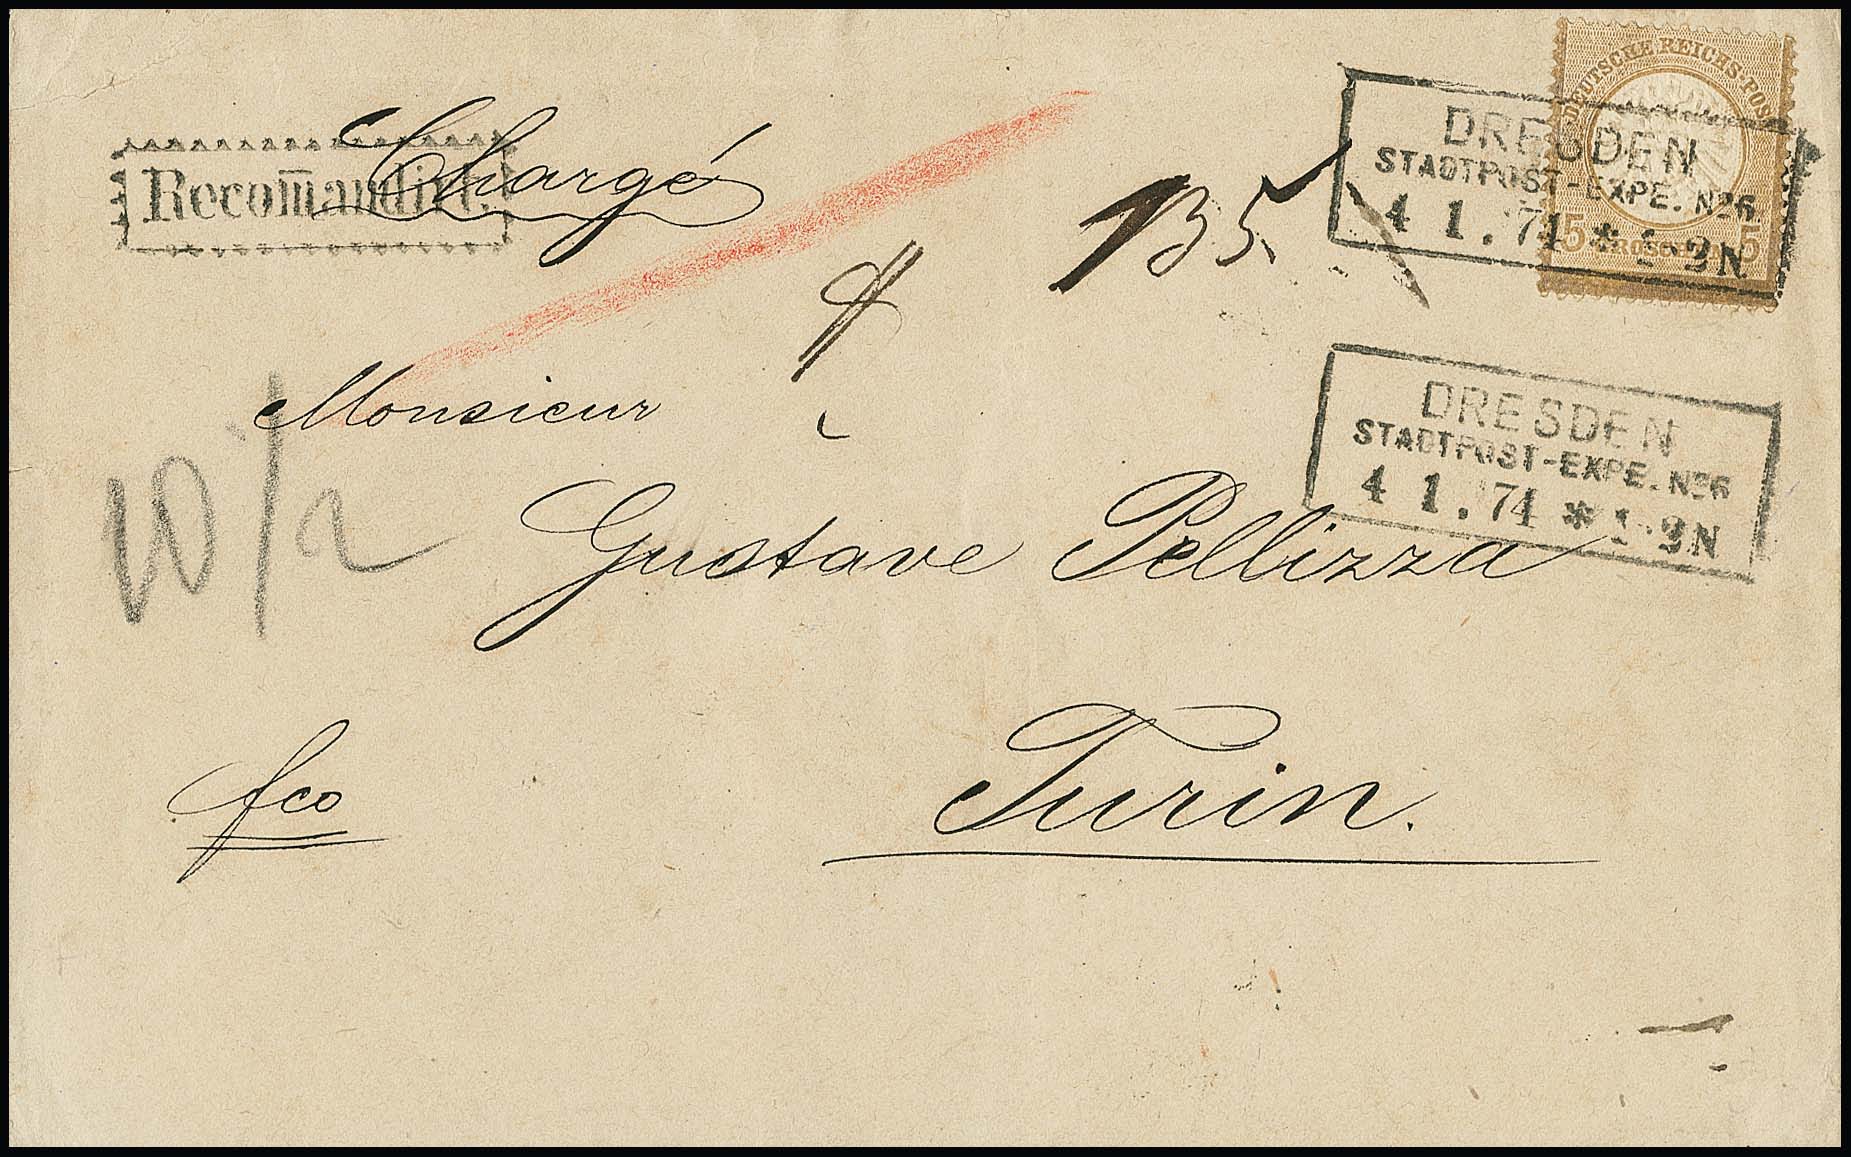 DEUTSCHE REICHS-POST
5 GROSCHEN 5
DRESDEN
STADTPOST-EXPE. No6
4 1. 74 * 1-2N
Recom̄andirt.
Chargé
135
DRESDEN
STADTPOST-EXPE. No6
4 1. 74 * 1-2N
Monsieur
Gustave Pellizza
Turin.
fco